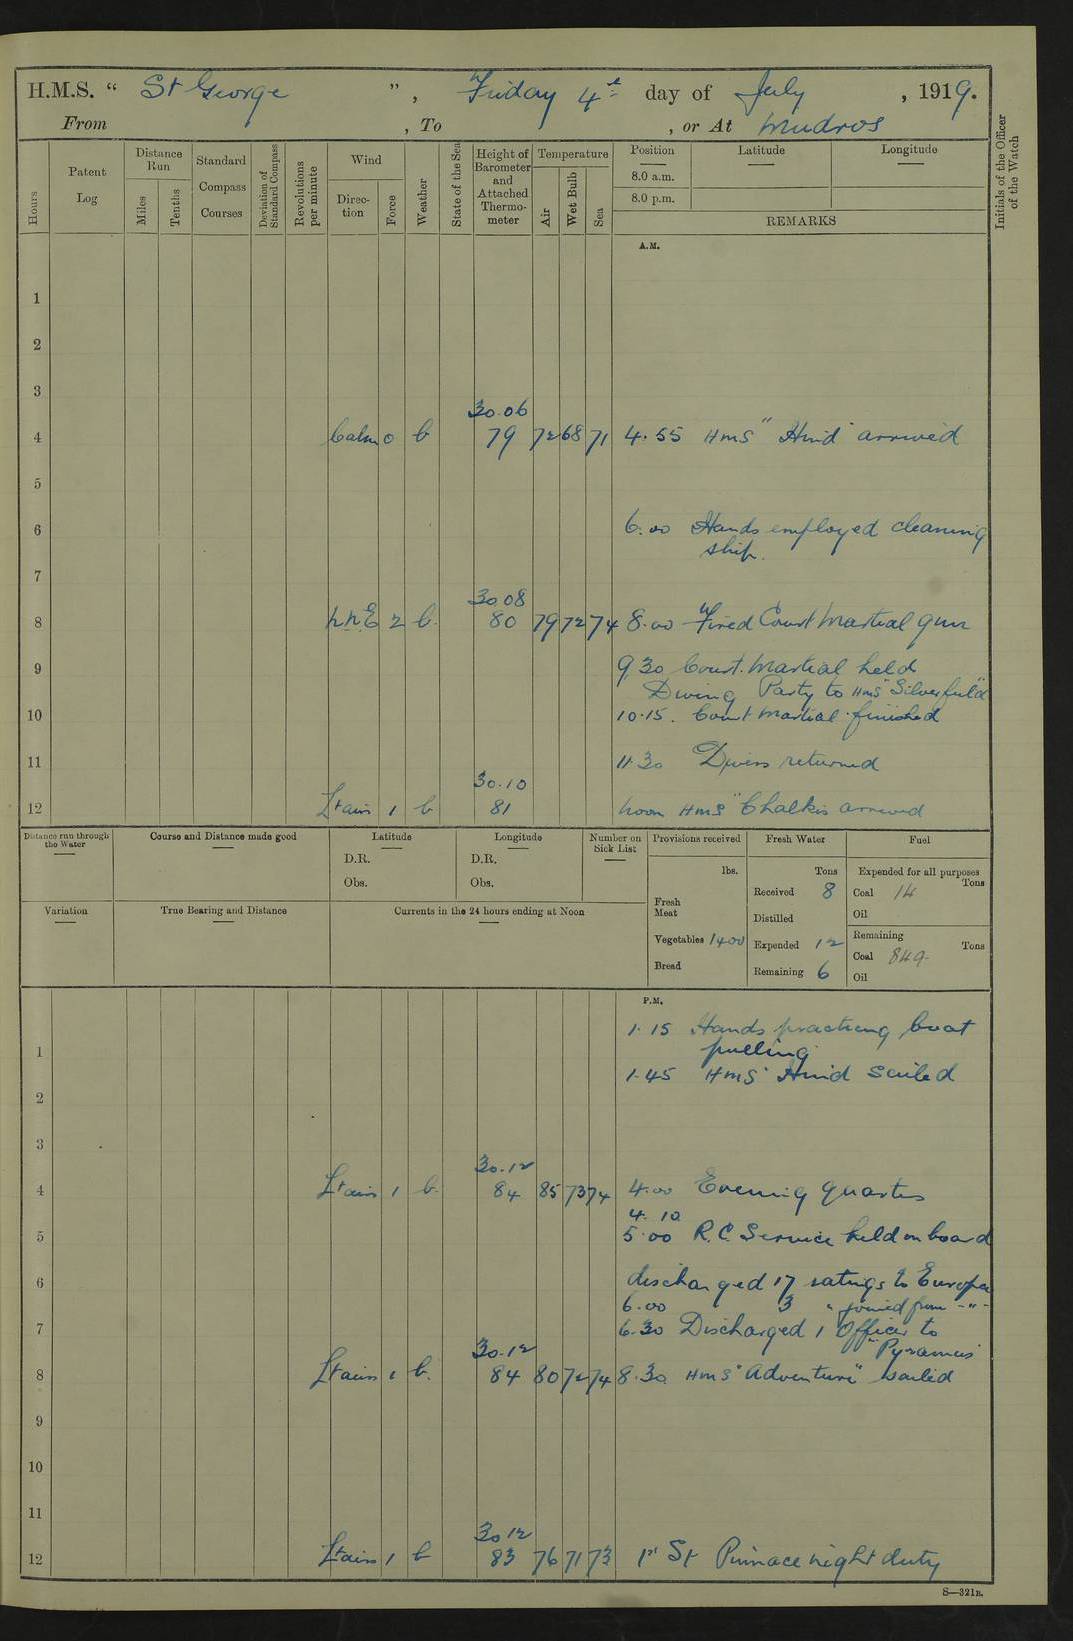 H.M.S. “ St George ” , Friday 4th day of July , 1919.
From , To , or At Mudros
Hours
Patent Log
Distance Run
Miles
Tenths
Standard Compass Courses
Deviation of Standard Compass
Revolutions per minute
Wind
Direction
Force
Weather
State of the Sea
Height of Barometer and Attached Thermometer
Temperature
Air
Wet Bulb
Sea
Position
8.0 a.m.
8.0 p.m.
Latitude
Longitude
REMARKS
Initials of the Officer of the Watch
A.M.
1
2
3
30.06
4 Calm 0 b 79 72 68 71 4.55 HMS "Hind" arrived
5
6 6.00 Hands employed cleaning
ship.
7
30.08
8 NNE 2 b. 80 79 72 74 8.00 Fired Court Martial gun
9 9.30 Court Martial held
Diving Party to HMS
10 10.15. Court Martial finished
11 11.30 Divers returned
30.10
12 Lt airs 1 b 81 Noon HMS "Chalkis arrived
Distance run through the Water
Course and Distance made good
Latitude
D.R.
Obs.
Longitude
D.R.
Obs.
Number on Sick List
Provisions received
lbs.
Fresh Meat
Vegetables 1400
Bread
Fresh Water
Tons
Received 8
Distilled
Expended 12
Remaining 6
Fuel
Expended for all purposes
Coal 14 Tons
Oil
Remaining
Coal 849 Tons
Oil
Variation
True Bearing and Distance
Currents in the 24 hours ending at Noon
P.M.
1.15 Hands practicing boat
1 pulling
1.45 HMS Hind sailed
2
3
30.12
4 Lt airs 1 b. 84 85 73 74 4.00 Evening quarters
4.10
5 5.00 R.C. Service held on board
6 discharged 17 ratings to Europa
6.00 3 " joined from -"-
7 6.30 Discharged 1 Officer to
30.12 "Pyramus"
8 Lt airs 1 b. 84 80 72 74 8.30 HMS "Adventure" sailed
9
10
11
30.12
12 Lt airs 1 b 83 76 71 73 1st St Pinnace night duty
S—321B.